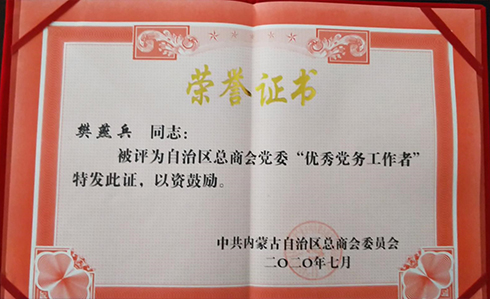 荣誉证书
樊燕兵 同志：
被评为自治区总商会党委“优秀党务工作者”
特发此证，以资鼓励。
中共内蒙古自治区总商会委员会
二〇二〇年七月